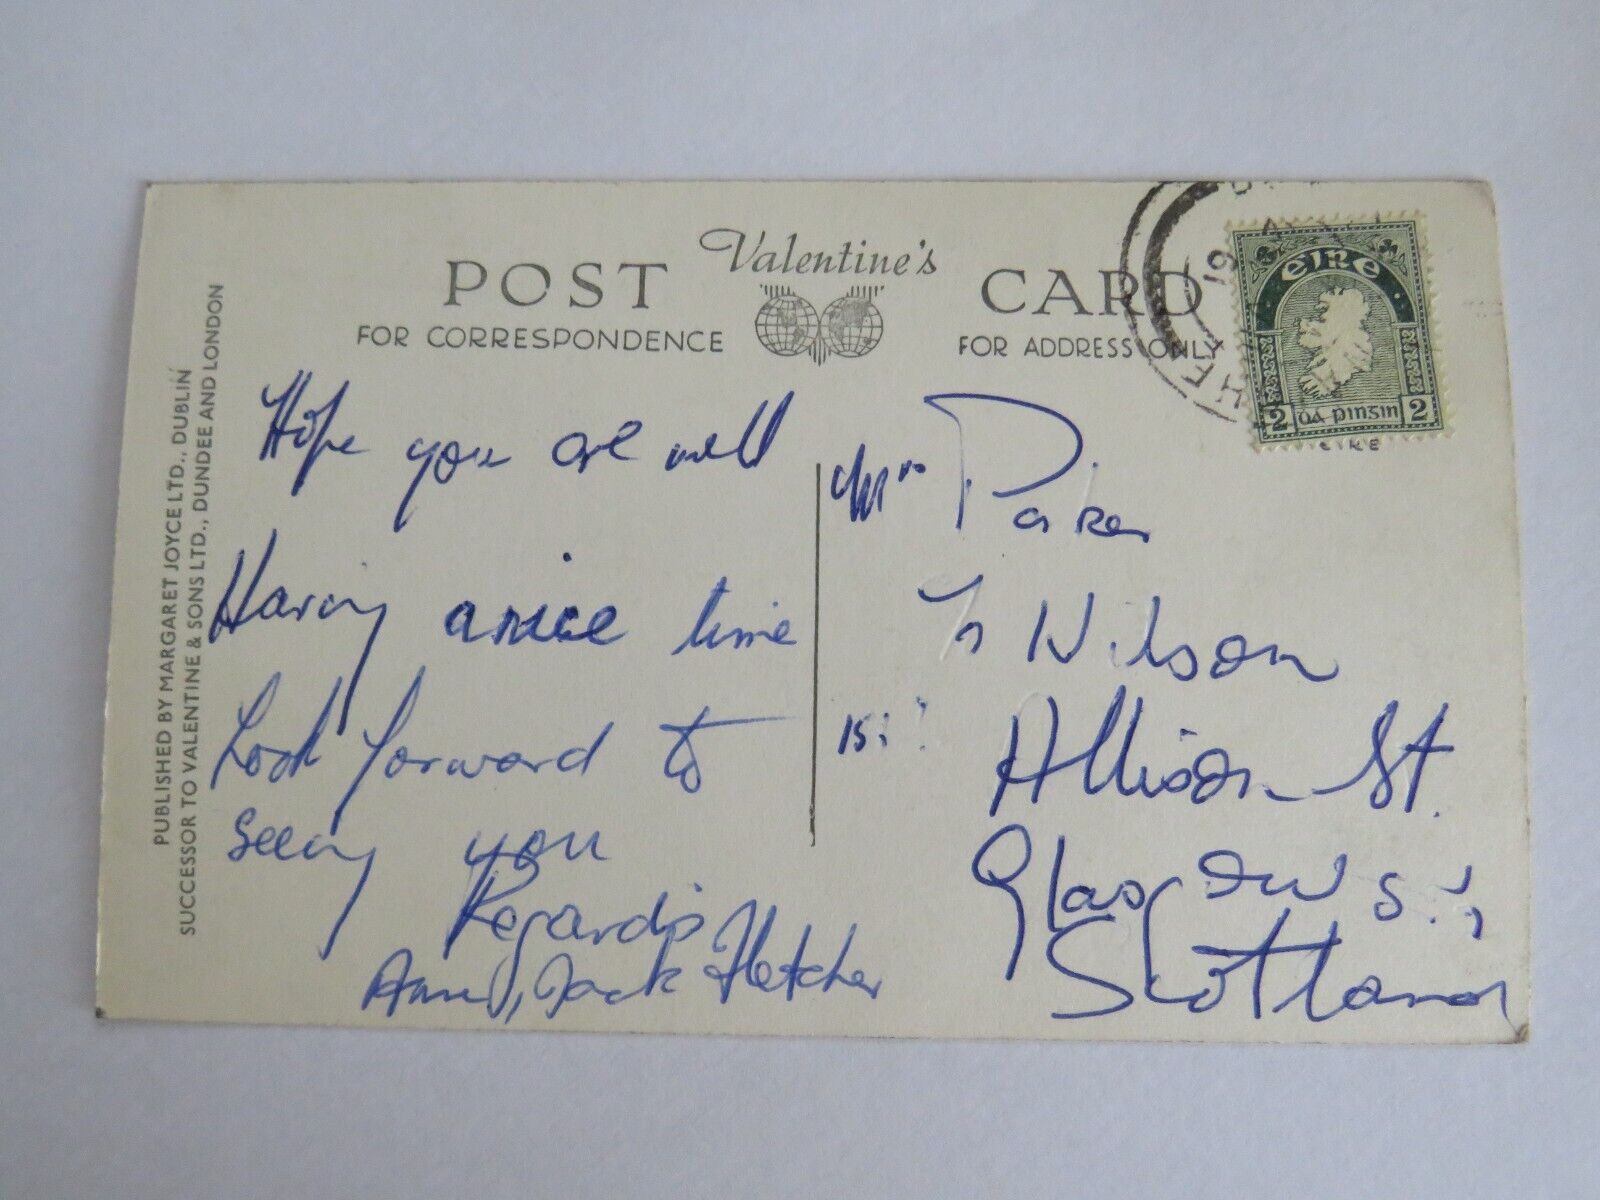 PUBLISHED BY MARGARET JOYCE LTD., DUBLIN
SUCCESSOR TO VALENTINE & SONS LTD., DUNDEE AND LONDON
POST Valentine's CARD
FOR CORRESPONDENCE
FOR ADDRESS ONLY
EIRE
2 DA PINGIN 2
EIRE
19
Hope you are well
Having a nice time
Look forward to
seeing you
Regards
Jack Fletcher
Wilson
Allison St.
Glasgow S.
Scotland